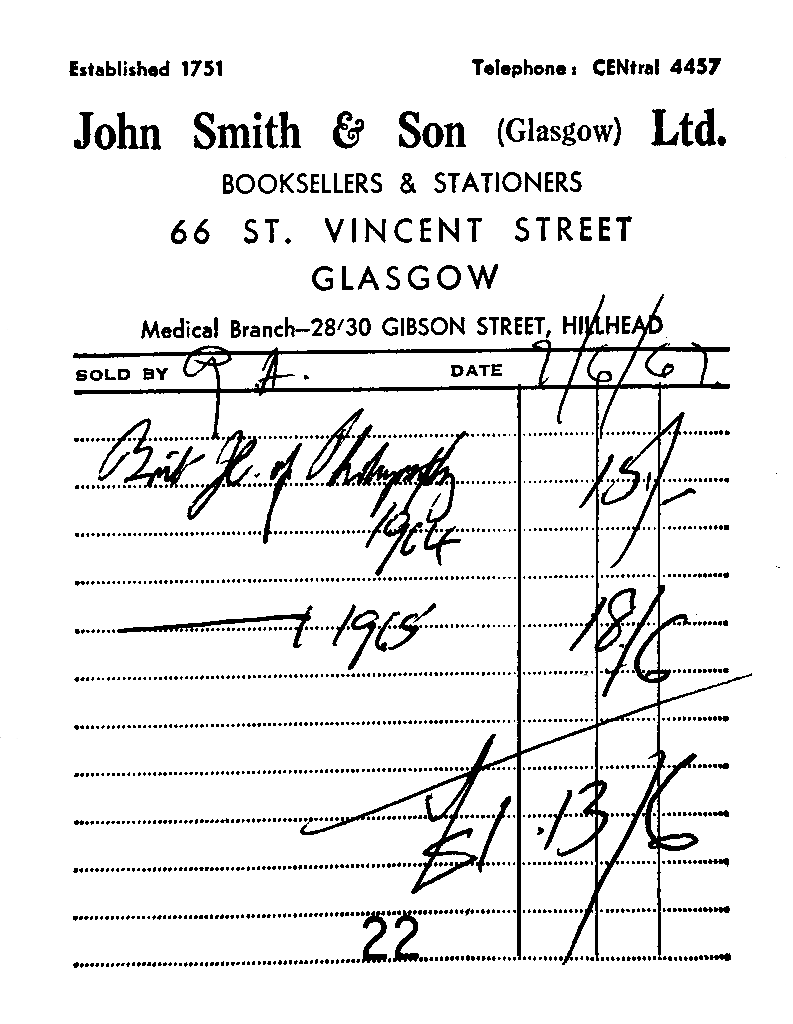 Established 1751 Telephone: CENtral 4457
John Smith & Son (Glasgow) Ltd.
BOOKSELLERS & STATIONERS
66 ST. VINCENT STREET
GLASGOW
Medical Branch—28/30 GIBSON STREET, HILLHEAD
SOLD BY P.A. DATE 7/6/67.
Brit Jl. of Photography 15/-
1964
1965 18/6
£1.13/6
22